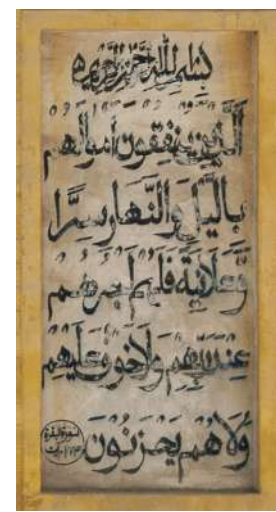 بسم الله الرحمن الرحيم
الَّذِينَ يُنفِقُونَ أَمْوَالَهُم
بِاللَّيْلِ وَالنَّهَارِ سِرًّا
وَّعَلَانِيَةً فَلَهُمْ أَجْرُهُمْ
عِندَ رَبِّهِمْ وَلَا خَوْفٌ عَلَيْهِمْ
وَلَا هُمْ يَحْزَنُونَ
سورة البقرة